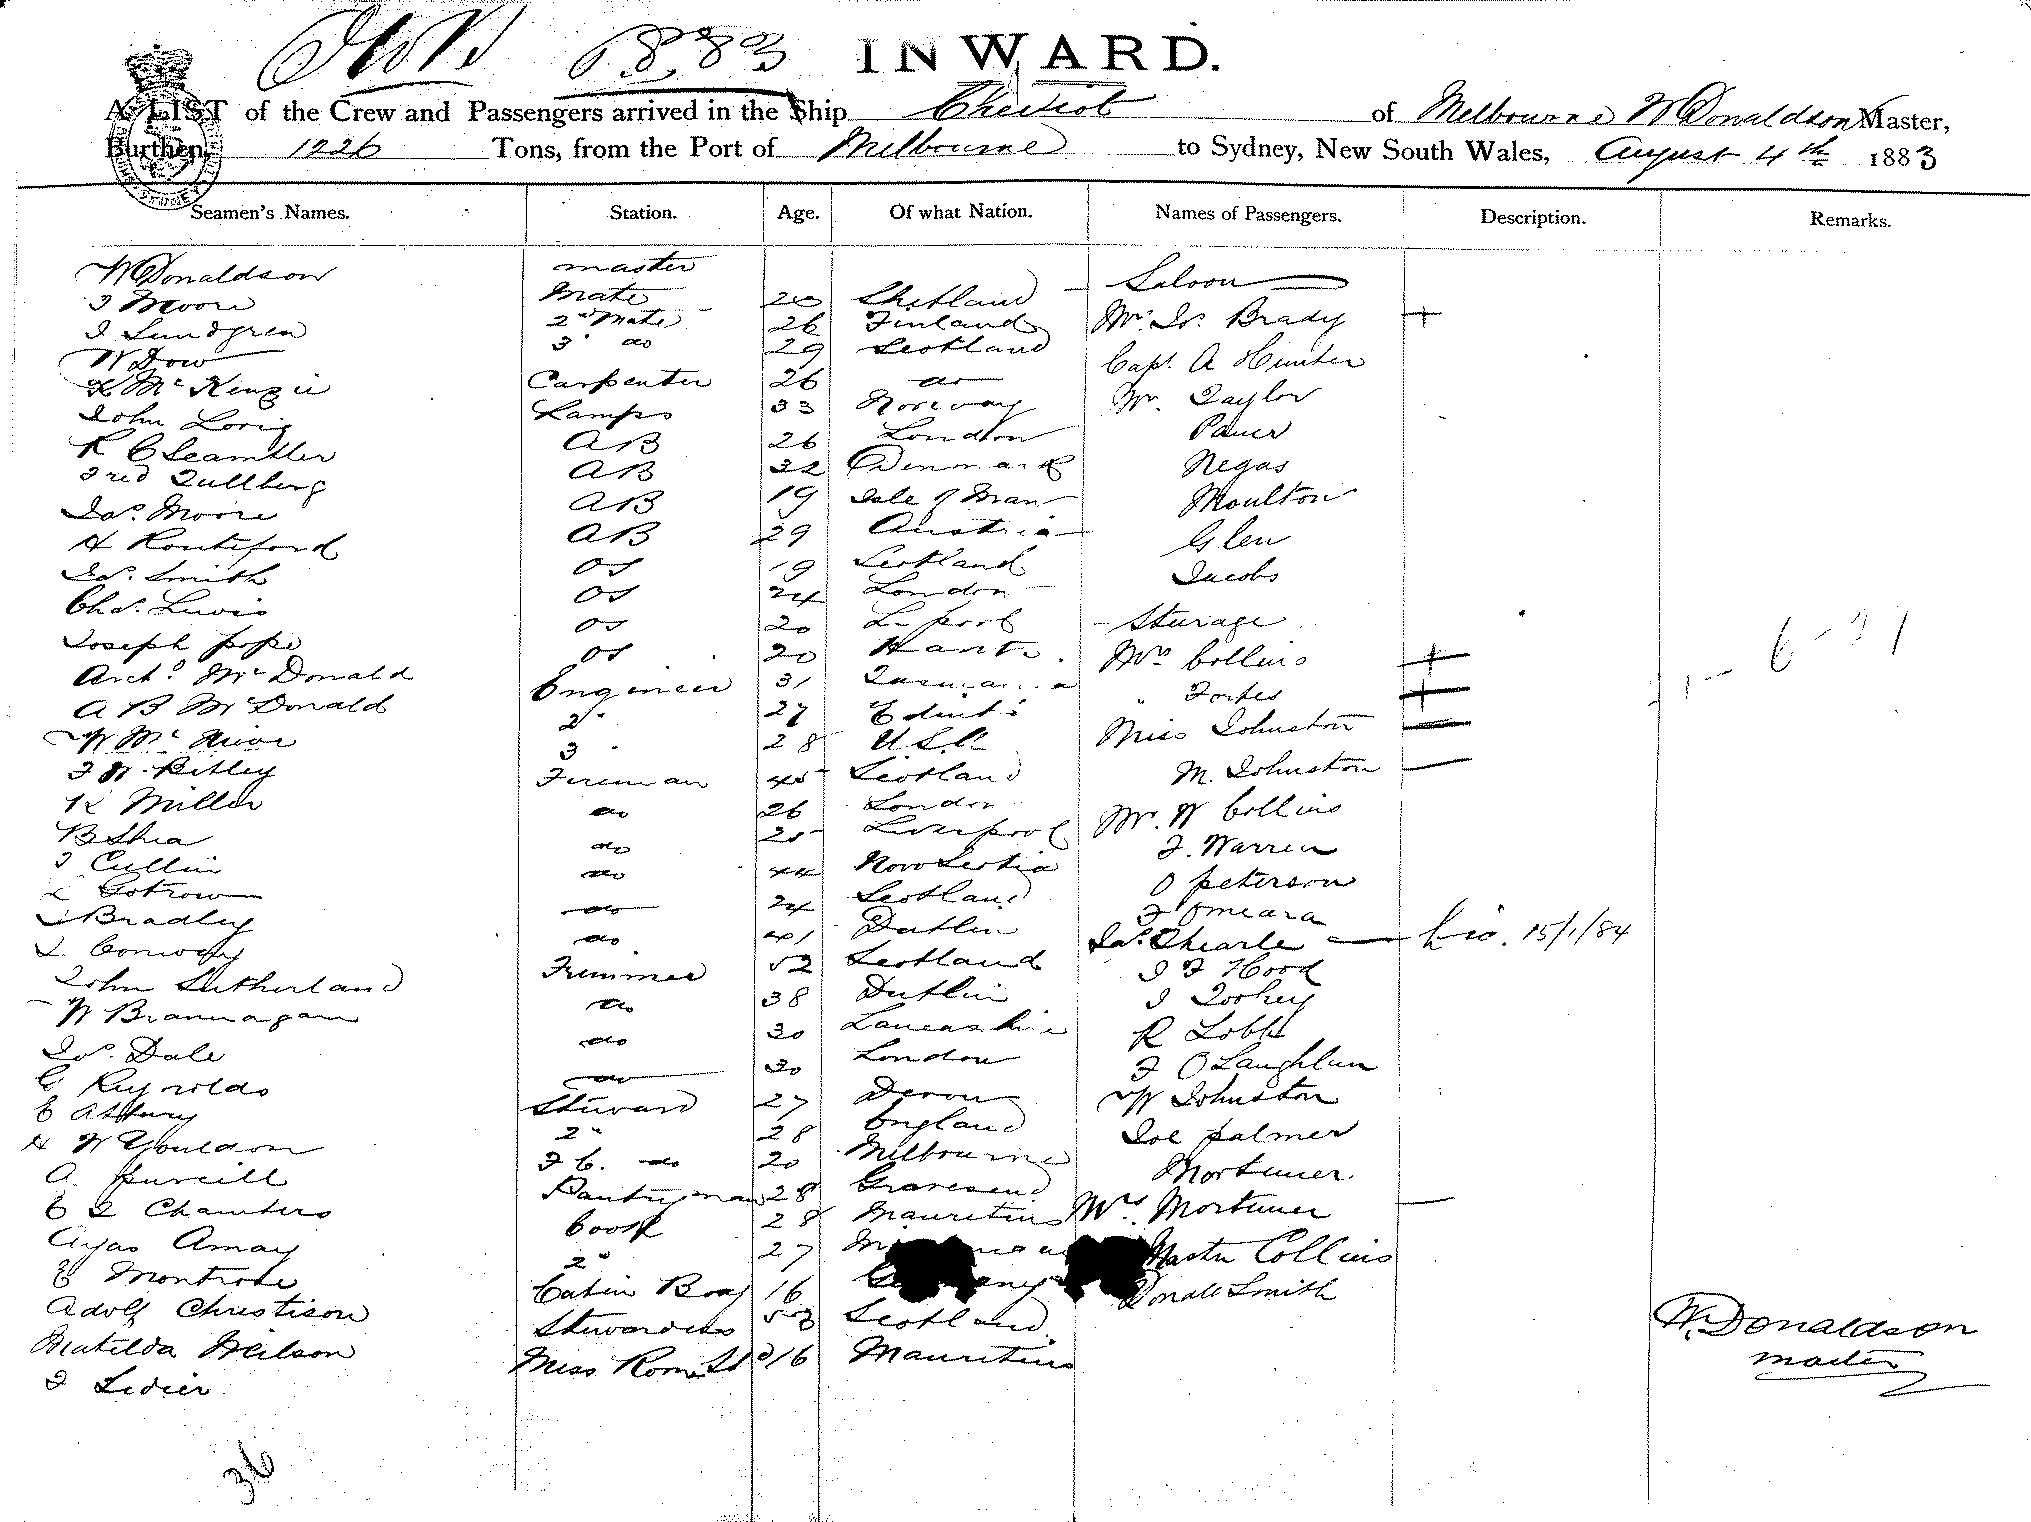 1883 INWARD.
A LIST of the Crew and Passengers arrived in the Ship Cheviot of Melbourne W Donaldson Master,
Burthen, 1226 Tons, from the Port of Melbourne to Sydney, New South Wales, August 4th 1883
Seamen's Names. Station. Age. Of what Nation. Names of Passengers. Description. Remarks.
W Donaldson master Saloon
J Moore Mate Shetland
J Lundgren 2nd Mate 26 Finland Mr. Js. Brady
W Dow 3 do 29 Scotland Capt. A Hunter
McKenzie Carpenter 26 do Mr. Taylor
John Lorig Lamps 33 Norway
R C AB 26 London Negas
Fred Tullberg AB 32 Denmark Moulton
Jas. Moore AB 19 Isle of Man Glen
H Routeford AB 29 Austria Jacobs
Jas. Smith OS 19 Scotland
Chas. Lewis OS 24 London Sturage
Joseph pope OS 20 L pool Mrs Collins
Archd McDonald OS 20 Hants " Forbes
A B McDonald Engineer 31 Tasmania Miss Johnston
W Mc 2" 27 Edinb M. Johnston
J W. Pitley 3 " 28 Mr. W Collins
R Miller Fireman 45 Scotland J. Warren
B Shea do 26 London O peterson
J Cullin do Liverpool J Omeara
Gotrow do 44 Nova Scotia Jas. Thearle Lio. 15/1/84
Bradley do 24 Scotland J F Hood
Conway do 41 Dublin J Tookey
John Sutherland Trimmer 52 Scotland R Lobb
W Brannagan do 38 Dublin J O Laughlin
Jos. Dale do 30 Lancashire W Johnston
G Reynolds do 30 London Joe palmer
E Asbury Steward 27 Devon Mortimer.
H W Gouldon 2" 28 England Mrs. Mortimer
A. purcill F C. do 20 Melbourne Master Collins
E J Chambers Pantryman 28 Gravesend Donald Smith
Ayas Amay Cook 28 Mauritius
E Montrose 2" 27
Adolf Christison Cabin Boy 16
Matilda Neilson Stewardess 53 Scotland
J Lidier Mess Room Std 16 Mauritius
W. Donaldson
master
36